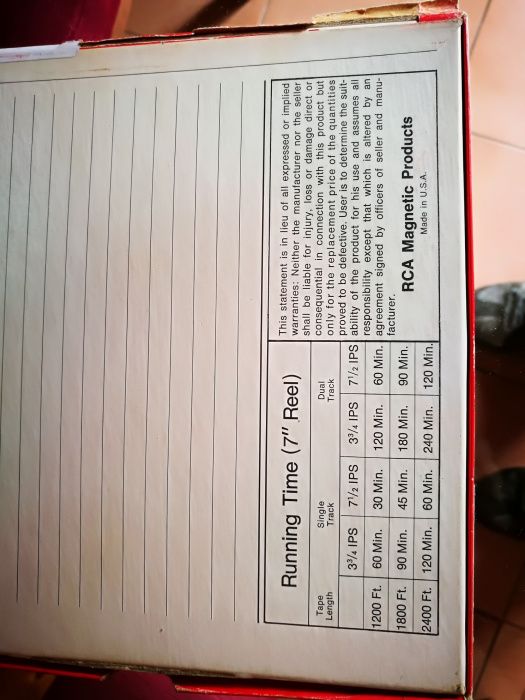 Running Time (7" Reel)
Tape Length Single Track Dual Track
3 3/4 IPS 7 1/2 IPS 3 3/4 IPS 7 1/2 IPS
1200 Ft. 60 Min. 30 Min. 120 Min. 60 Min.
1800 Ft. 90 Min. 45 Min. 180 Min. 90 Min.
2400 Ft. 120 Min. 60 Min. 240 Min. 120 Min.
This statement is in lieu of all expressed or implied
warranties: Neither the manufacturer nor the seller
shall be liable for injury, loss or damage direct or
consequential in connection with this product but
only for the replacement price of the quantities
proved to be defective. User is to determine the suit-
ability of the product for his use and assumes all
responsibility except that which is altered by an
agreement signed by officers of seller and manu-
facturer.
RCA Magnetic Products
Made in U.S.A.